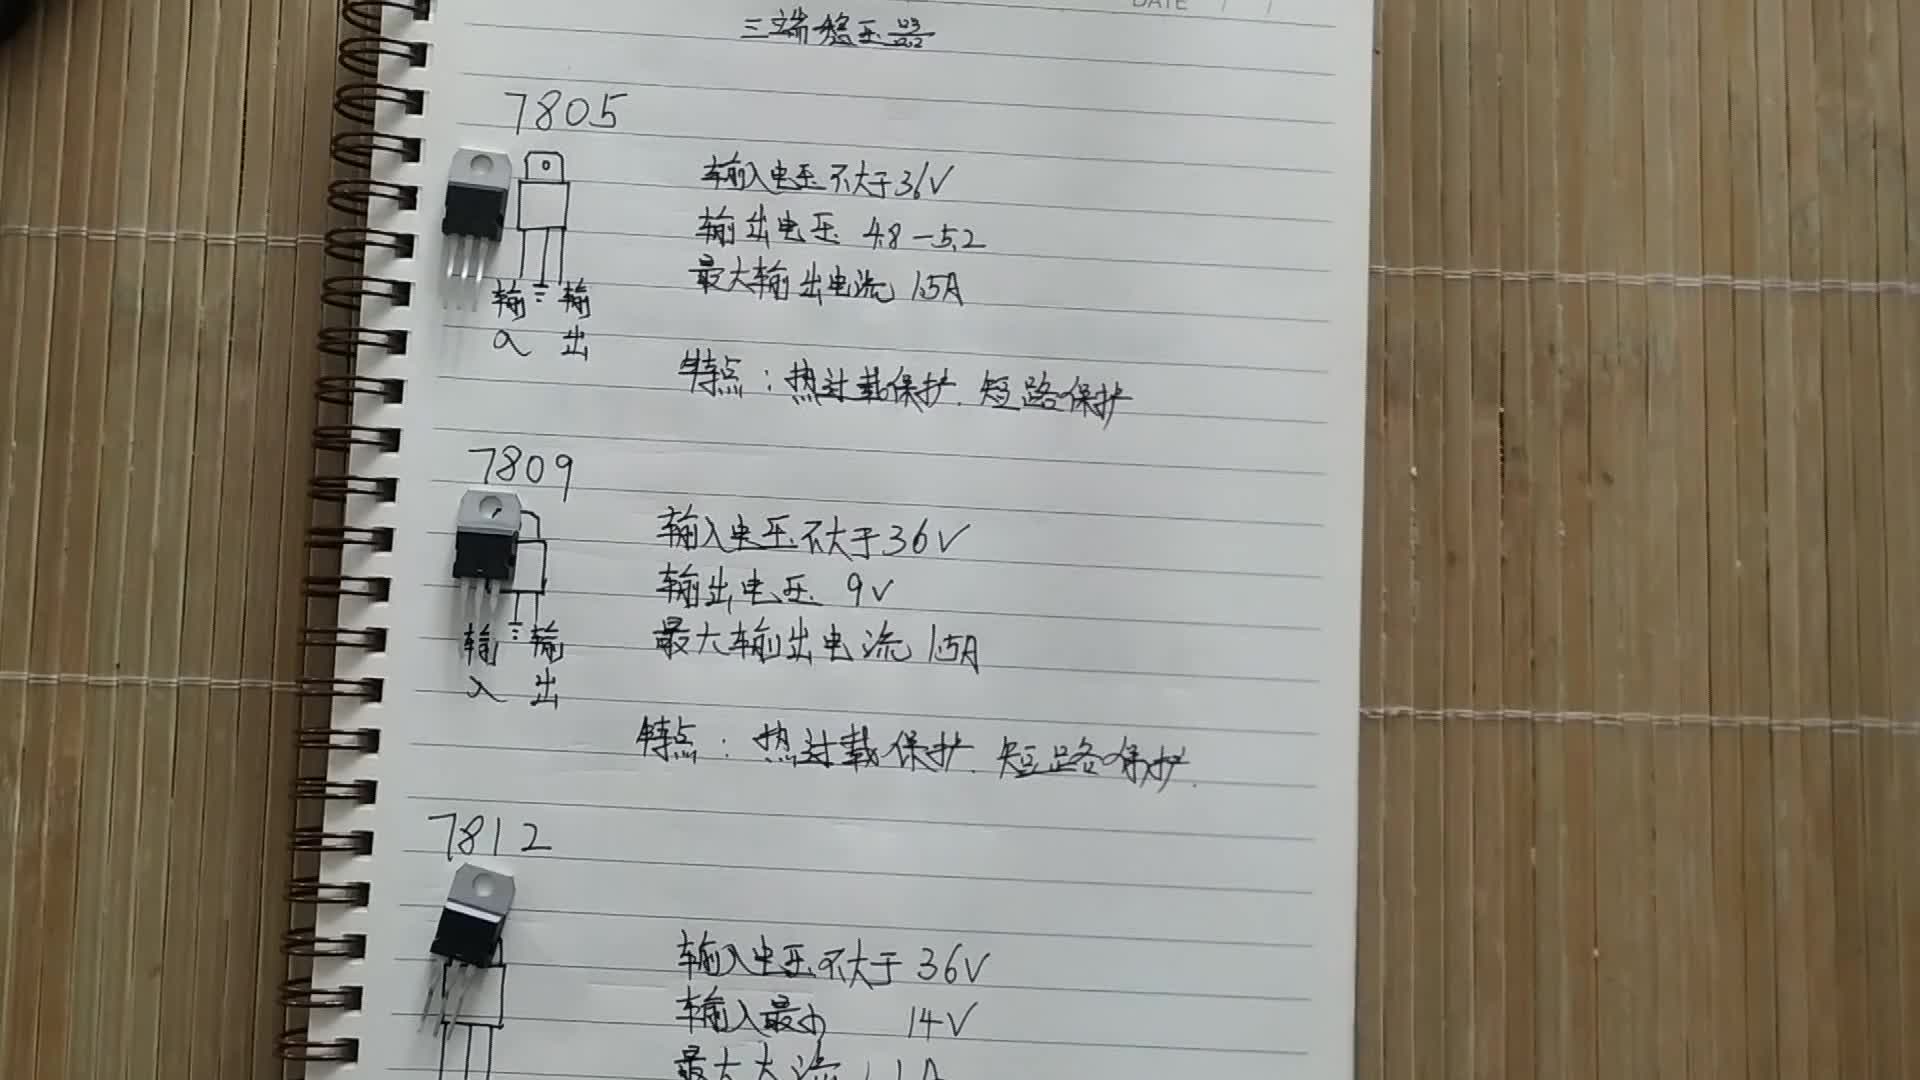 DATE / /
三端稳压器
7805
输入 输出
输入电压不大于36V
输出电压 4.8-5.2
最大输出电流 1.5A
特点：热过载保护.短路保护
7809
输入 输出
输入电压不大于36V
输出电压 9V
最大输出电流 1.5A
特点：热过载保护.短路保护.
7812
输入电压不大于 36V
输入最小 14V